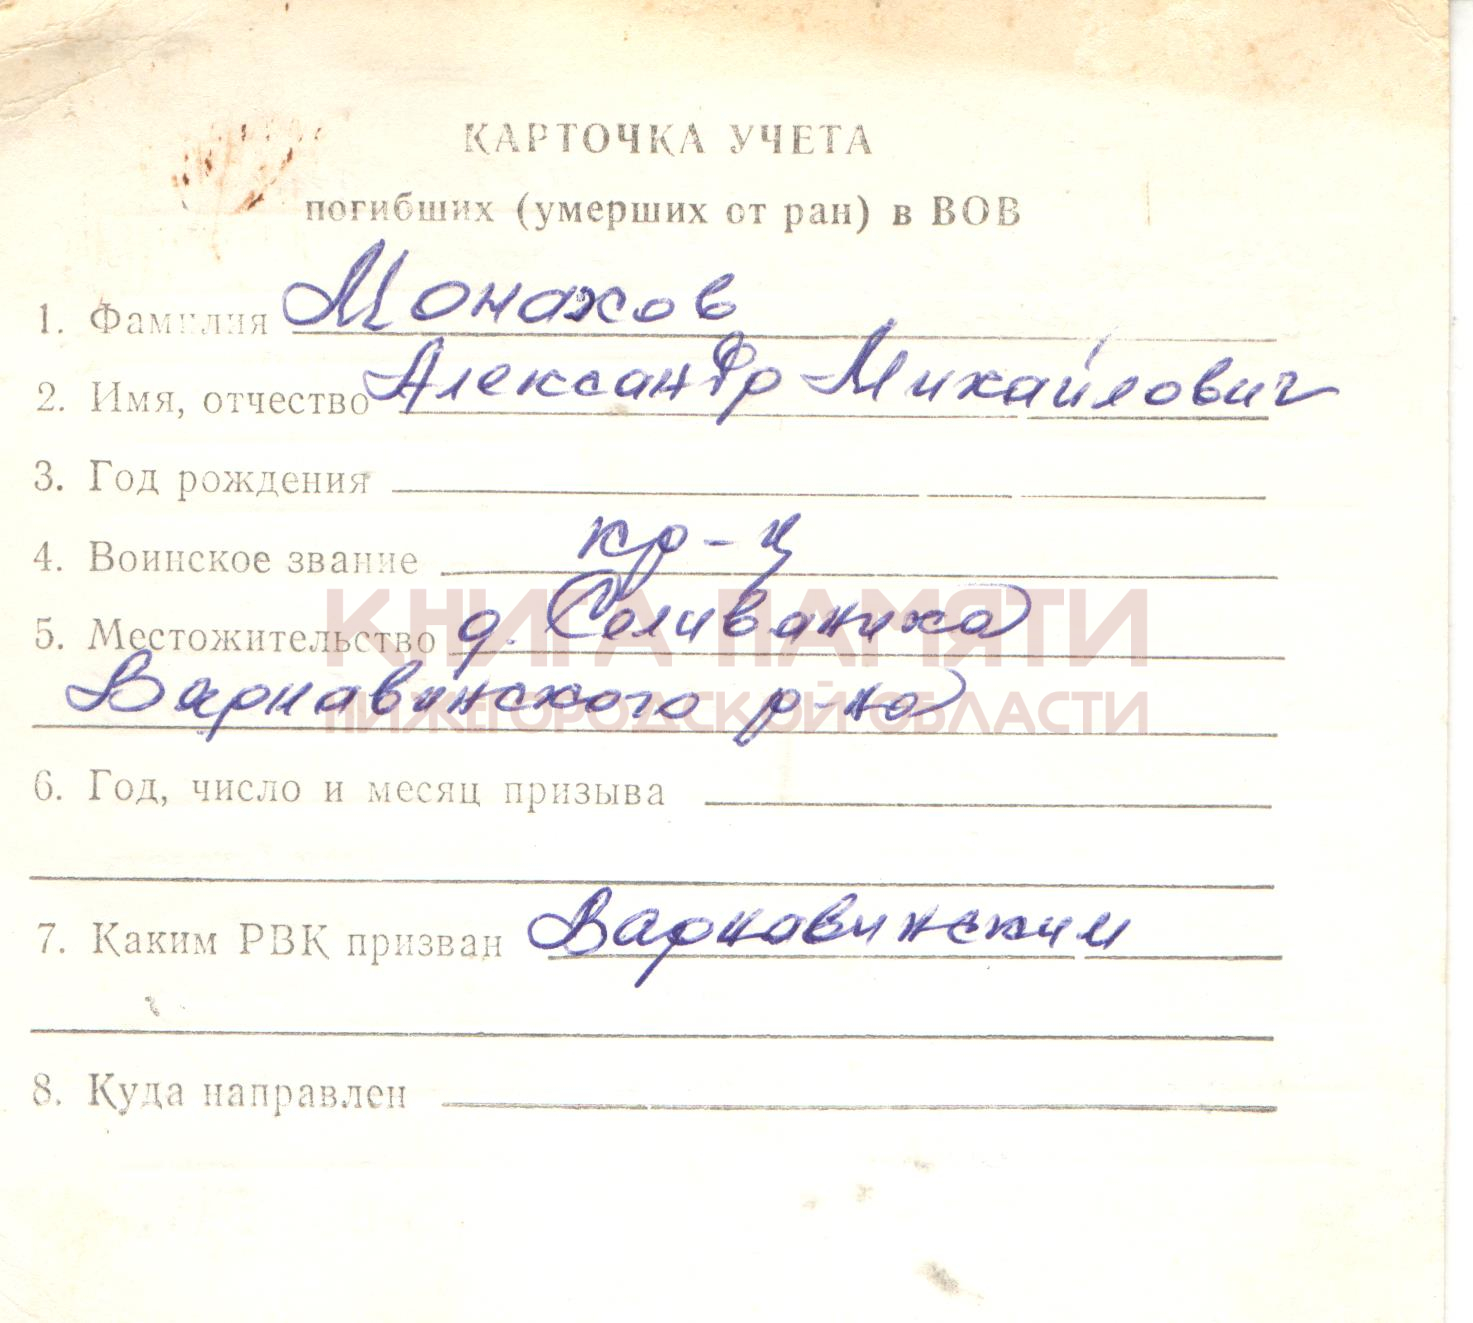 КАРТОЧКА УЧЕТА
погибших (умерших от ран) в ВОВ
1. Фамилия Монахов
2. Имя, отчество Александр Михайлович
3. Год рождения
4. Воинское звание кр-ц
5. Местожительство д. Селиваниха
КНИГА ПАМЯТИ
Варнавинского р-на
НИЖЕГОРОДСКОЙ ОБЛАСТИ
6. Год, число и месяц призыва
7. Каким РВК призван Варнавинским
8. Куда направлен